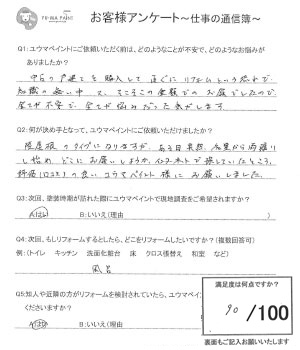 YU-MA PAINT
お客様アンケート～仕事の通信簿～
Q1:ユウマペイントにご依頼いただく前は、どのようなことが不安で、どのようなお悩みが
ありましたか?
中古の戸建てを購入して直ぐにリフォームという流れで、
知識の無い中で、そこそこの金額でのお願いでしたので、
全てが不安で、全てが悩みだった気がします。
Q2:何が決め手となって、ユウマペイントにご依頼いただけましたか?
ある日突然、
し始め、どこにお願いしようか、ネットで探していたところ、
評価(口コミ)の良いユウマペイント様にお願いしました。
Q3:次回、塗装時期が訪れた際にユウマペイントで現地調査をご希望されますか?
A:はい B:いいえ(理由 )
Q4:次回、もしリフォームするとしたら、どこをリフォームしたいですか?(複数回答可)
例:(トイレ キッチン 洗面化粧台 床 クロス張替え 和室 など)
風呂
Q5:知人や近隣の方がリフォームを検討されていたら、ユウマペイ
くださいますか?
A:はい B:いいえ(理由
満足度は何点ですか?
90/100
裏面もご記入お願いいたします